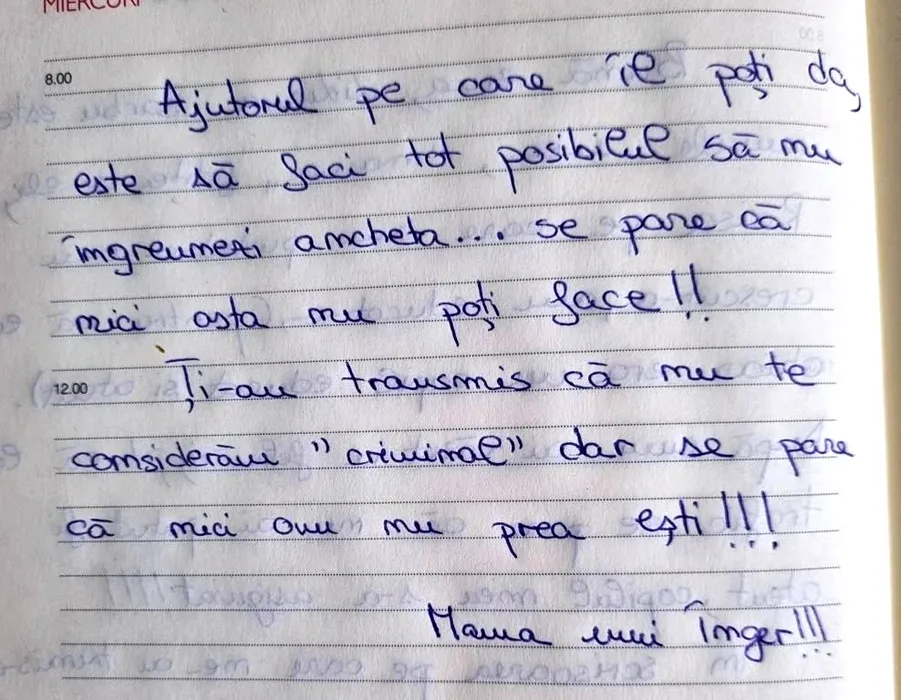 MIERCURI
8.00
Ajutorul pe care îl poți da,
este să faci tot posibilul să nu
îngreunezi ancheta... se pare că
nici asta nu poți face!!
12.00
Ți-am transmis că nu te
considerăm "criminal" dar se pare
că nici om nu prea ești!!!
Mama unui înger!!!